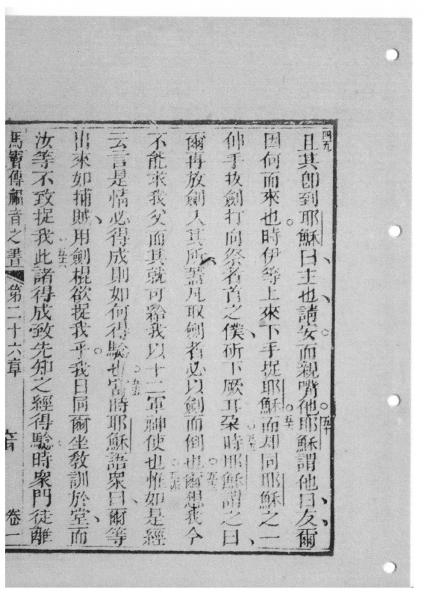 四九
且其即到耶穌曰主也請安而親嘴他耶穌謂他曰友爾
五十
因何而來也時伊等上來下手捉耶穌而却同耶穌之一
五一
伸手拔劍打向祭者首之僕斫下厥耳朶時耶穌謂之曰
五二
爾再放劍入其所蓋凡取劍者必以劍而倒也爾想我今
五三
不能求我父而其就可給我以十二軍神使也惟如是經
五四
云言是情必得成則如何得驗也當時耶穌語衆曰爾等
五五
出來如捕賊用劍棍欲捉我乎我日同爾坐敎訓於堂而
汝等不致捉我此諸得成致先知之經得驗時衆門徒離
五六
馬竇傳福音之書 第二十六章 卷一